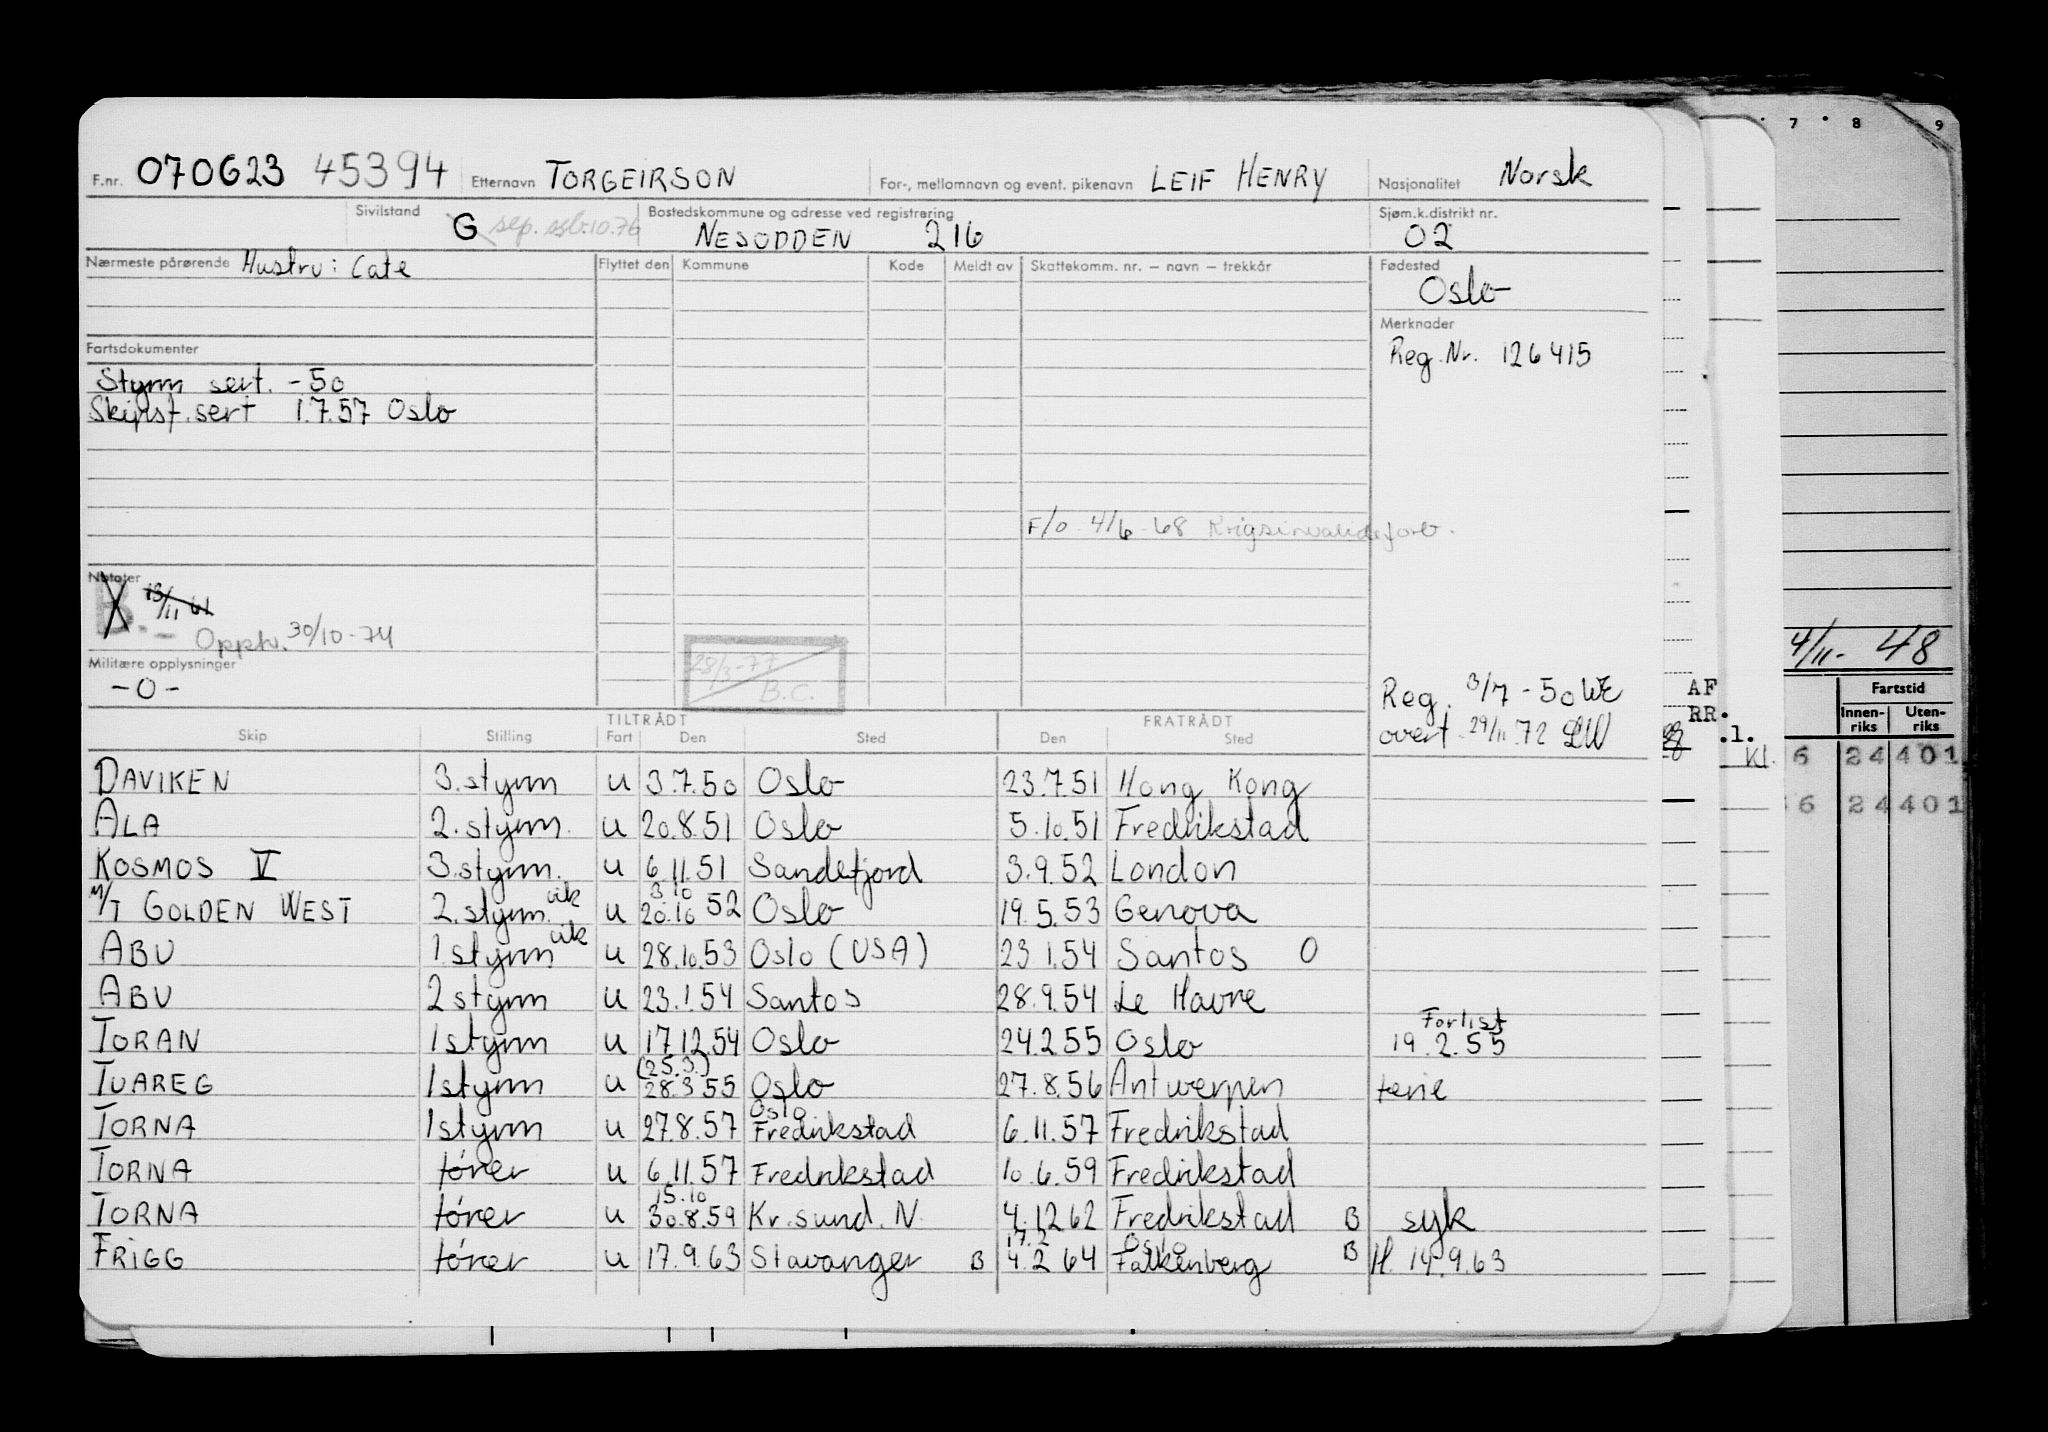 F.nr. 070623 45394 Etternavn TORGEIRSON For-, mellomnavn og event. pikenavn LEIF HENRY Nasjonalitet Norsk
Sivilstand G sep. Bostedskommune og adresse ved registrering NESODDEN 216 Sjøm.k.distrikt nr. 02
Nærmeste pårørende Hustru: Cate Flyttet den Kommune Kode Meldt av Skattekomm. nr. – navn – trekkår Fødested Oslo
Merknader
Reg. Nr. 126415
Fartsdokumenter
Styrm sert. - 50
Skipsf. sert 1.7.57 Oslo
F/o 4/6-68 Krigsinvalideforb.
Notater
B. 13/11 61
Opptv. 30/10-74
Militære opplysninger
-0-
28/3-77
B.C.
Reg. 3/7-50 WE
overf. 29/11.72 LW
Skip Stilling TILTRÅDT Fart Den Sted FRATRÅDT Den Sted
DAVIKEN 3. styrm u 3.7.50 Oslo 23.7.51 Hong Kong
ALA 2. styrm. u 20.8.51 Oslo 5.10.51 Fredrikstad
KOSMOS V 3. styrm. u 6.11.51 Sandefjord 3.9.52 London
M/T GOLDEN WEST 2. styrm. vik u 3.10 20.10 52 Oslo 19.5.53 Genova
ABU 1. styrm vik u 28.10.53 Oslo (USA) 23.1.54 Santos O
ABU 2 styrm u 23.1.54 Santos 28.9.54 Le Havre
TORAN 1 styrm u 17.12.54 Oslo 24.2.55 Oslo Forlist 19.2.55
TUAREG 1 styrm u (25.3.) 28.3.55 Oslo 27.8.56 Antwerpen ferie
TORNA 1 styrm u 27.8.57 Oslo Fredrikstad 6.11.57 Fredrikstad
TORNA fører u 6.11.57 Fredrikstad 10.6.59 Fredrikstad
TORNA fører u 15.10 30.8.59 Kr.sund. N. 4.12 62 Fredrikstad B syk
FRIGG fører u 17.9.63 Stavanger B 17.2 4.2 64 Oslo Falkenberg B H. 14.9.63
7 8 9
4/11- 48
Fartstid
Innen-riks Uten-riks
AF
RR.
.1.
Kl. 6 24 401
6 24 401